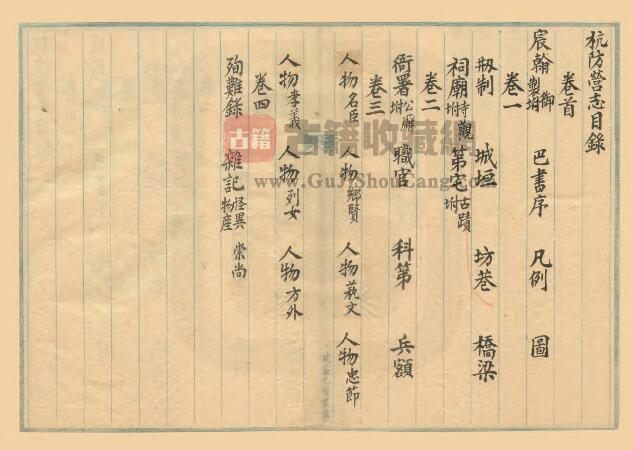 杭防營志目錄
卷首
宸翰 御製附 巴書序 凡例 圖
卷一
刱制 城垣 坊巷 橋梁
祠廟 寺觀附 第宅 古蹟附
卷二
衙署 公廨附 職官 科第 兵額
卷三
人物名臣 人物鄉賢 人物藝文 人物忠節
人物孝義 人物列女 人物方外
卷四
殉難錄 雜記 怪異物產 崇尚
古籍 古籍收藏網
www.GuJiShouCang.com